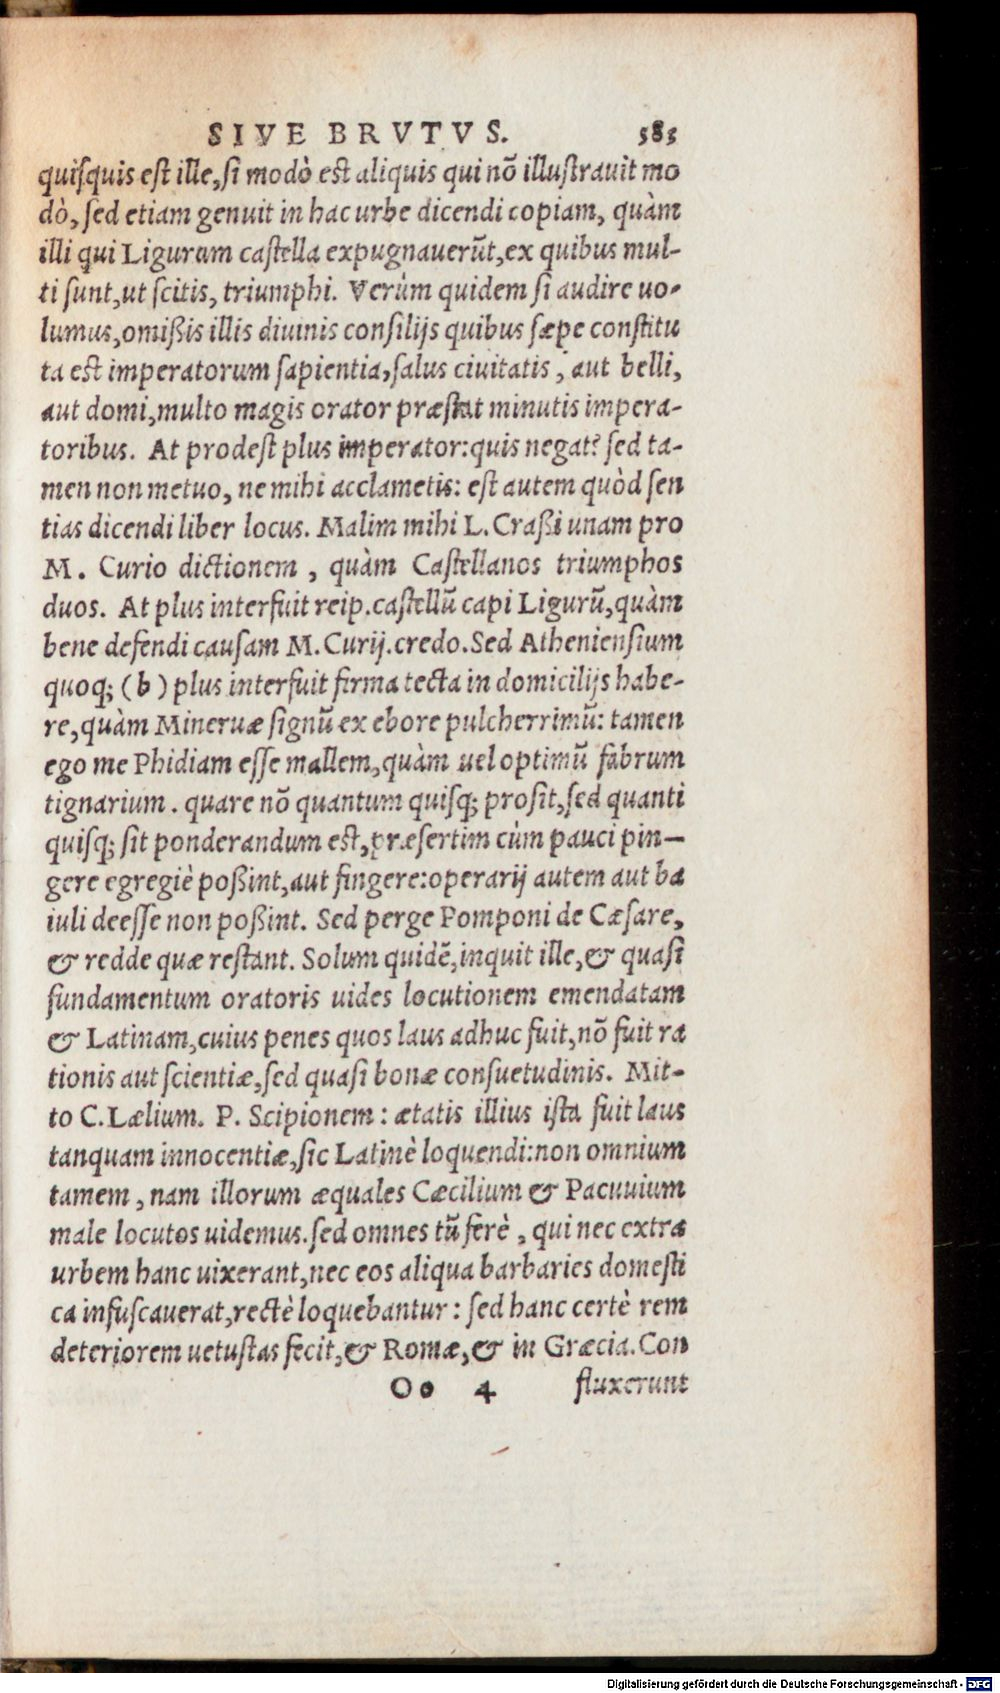 SIVE BRVTVS. 585
quiſquis eſt ille, ſi modò eſt aliquis qui nõ illuſtrauit mo
dò, ſed etiam genuit in hac urbe dicendi copiam, quàm
illi qui Ligurum caſtella expugnauerũt, ex quibus mul-
ti ſunt, ut ſcitis, triumphi. Verùm quidem ſi audire uo-
lumus, omißis illis diuinis conſilijs quibus ſæpe conſtitu
ta eſt imperatorum ſapientia, ſalus ciuitatis, aut belli,
aut domi, multo magis orator præſtat minutis impera-
toribus. At prodeſt plus imperator: quis negat? ſed ta-
men non metuo, ne mihi acclametis: eſt autem quòd ſen
tias dicendi liber locus. Malim mihi L. Craßi unam pro
M. Curio dictionem, quàm Caſtellanos triumphos
duos. At plus interfuit reip. caſtellũ capi Ligurũ, quàm
bene defendi cauſam M. Curij. credo. Sed Athenienſium
quoq; (b) plus interfuit firma tecta in domicilijs habe-
re, quàm Mineruæ ſignũ ex ebore pulcherrimũ: tamen
ego me Phidiam eſſe mallem, quàm uel optimũ fabrum
tignarium. quare nõ quantum quiſq; proſit, ſed quanti
quiſq; ſit ponderandum eſt, præſertim cùm pauci pin-
gere egregiè poßint, aut fingere: operarij autem aut ba
iuli deeſſe non poßint. Sed perge Pomponi de Cæſare,
& redde quæ reſtant. Solum quidẽ, inquit ille, & quaſi
fundamentum oratoris uides locutionem emendatam
& Latinam, cuius penes quos laus adhuc fuit, nõ fuit ra
tionis aut ſcientiæ, ſed quaſi bonæ conſuetudinis. Mit-
to C. Lælium. P. Scipionem: ætatis illius iſta fuit laus
tanquam innocentiæ, ſic Latinè loquendi: non omnium
tamem, nam illorum æquales Cæcilium & Pacuuium
male locutos uidemus. ſed omnes tũ ferè, qui nec extra
urbem hanc uixerant, nec eos aliqua barbaries domeſti
ca infuſcauerat, rectè loquebantur: ſed hanc certè rem
deteriorem uetuſtas fecit, & Romæ, & in Græcia. Con
Oo 4 fluxerunt
Digitalisierung gefördert durch die Deutsche Forschungsgemeinschaft - DFG